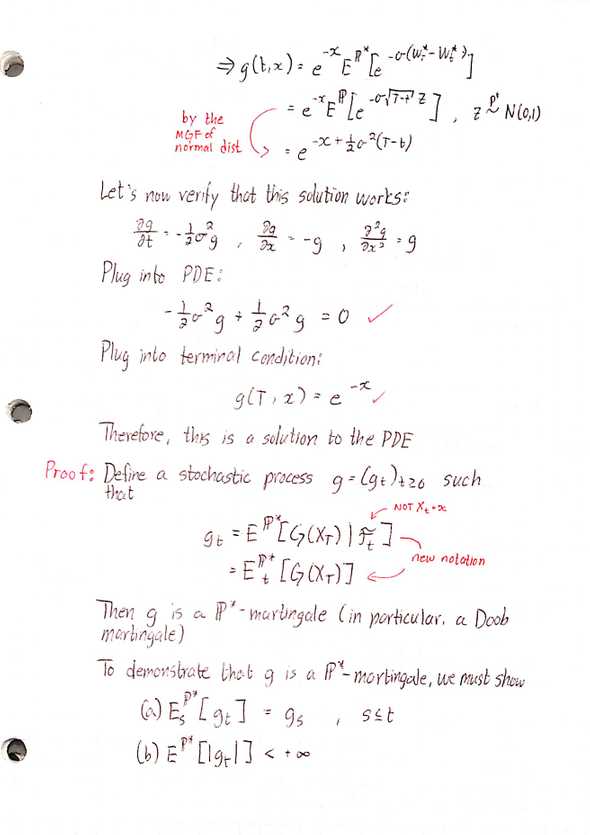 ⇒ g(t,x) = e^{-x} E^{ℙ*}[e^{-σ(W_T^* - W_t^*)}]
= e^{-x} E^{ℙ}[e^{-σ√(T-t) Z}] , Z ~^{ℙ*} N(0,1)
by the
MGF of
normal dist
= e^{-x + ½σ²(T-t)}
Let's now verify that this solution works:
∂g/∂t = -½σ²g , ∂g/∂x = -g , ∂²g/∂x² = g
Plug into PDE:
-½σ²g + ½σ²g = 0 ✓
Plug into terminal condition:
g(T,x) = e^{-x} ✓
Therefore, this is a solution to the PDE
Proof: Define a stochastic process g = (g_t)_{t≥0} such
that
NOT X_t = x
g_t = E^{ℙ*}[G(X_T) | ℱ_t]
new notation
= E_t^{ℙ*}[G(X_T)]
Then g is a ℙ*-martingale (in particular, a Doob
martingale)
To demonstrate that g is a ℙ*-martingale, we must show
(a) E_s^{ℙ*}[g_t] = g_s , s≤t
(b) E^{ℙ*}[|g_t|] < +∞